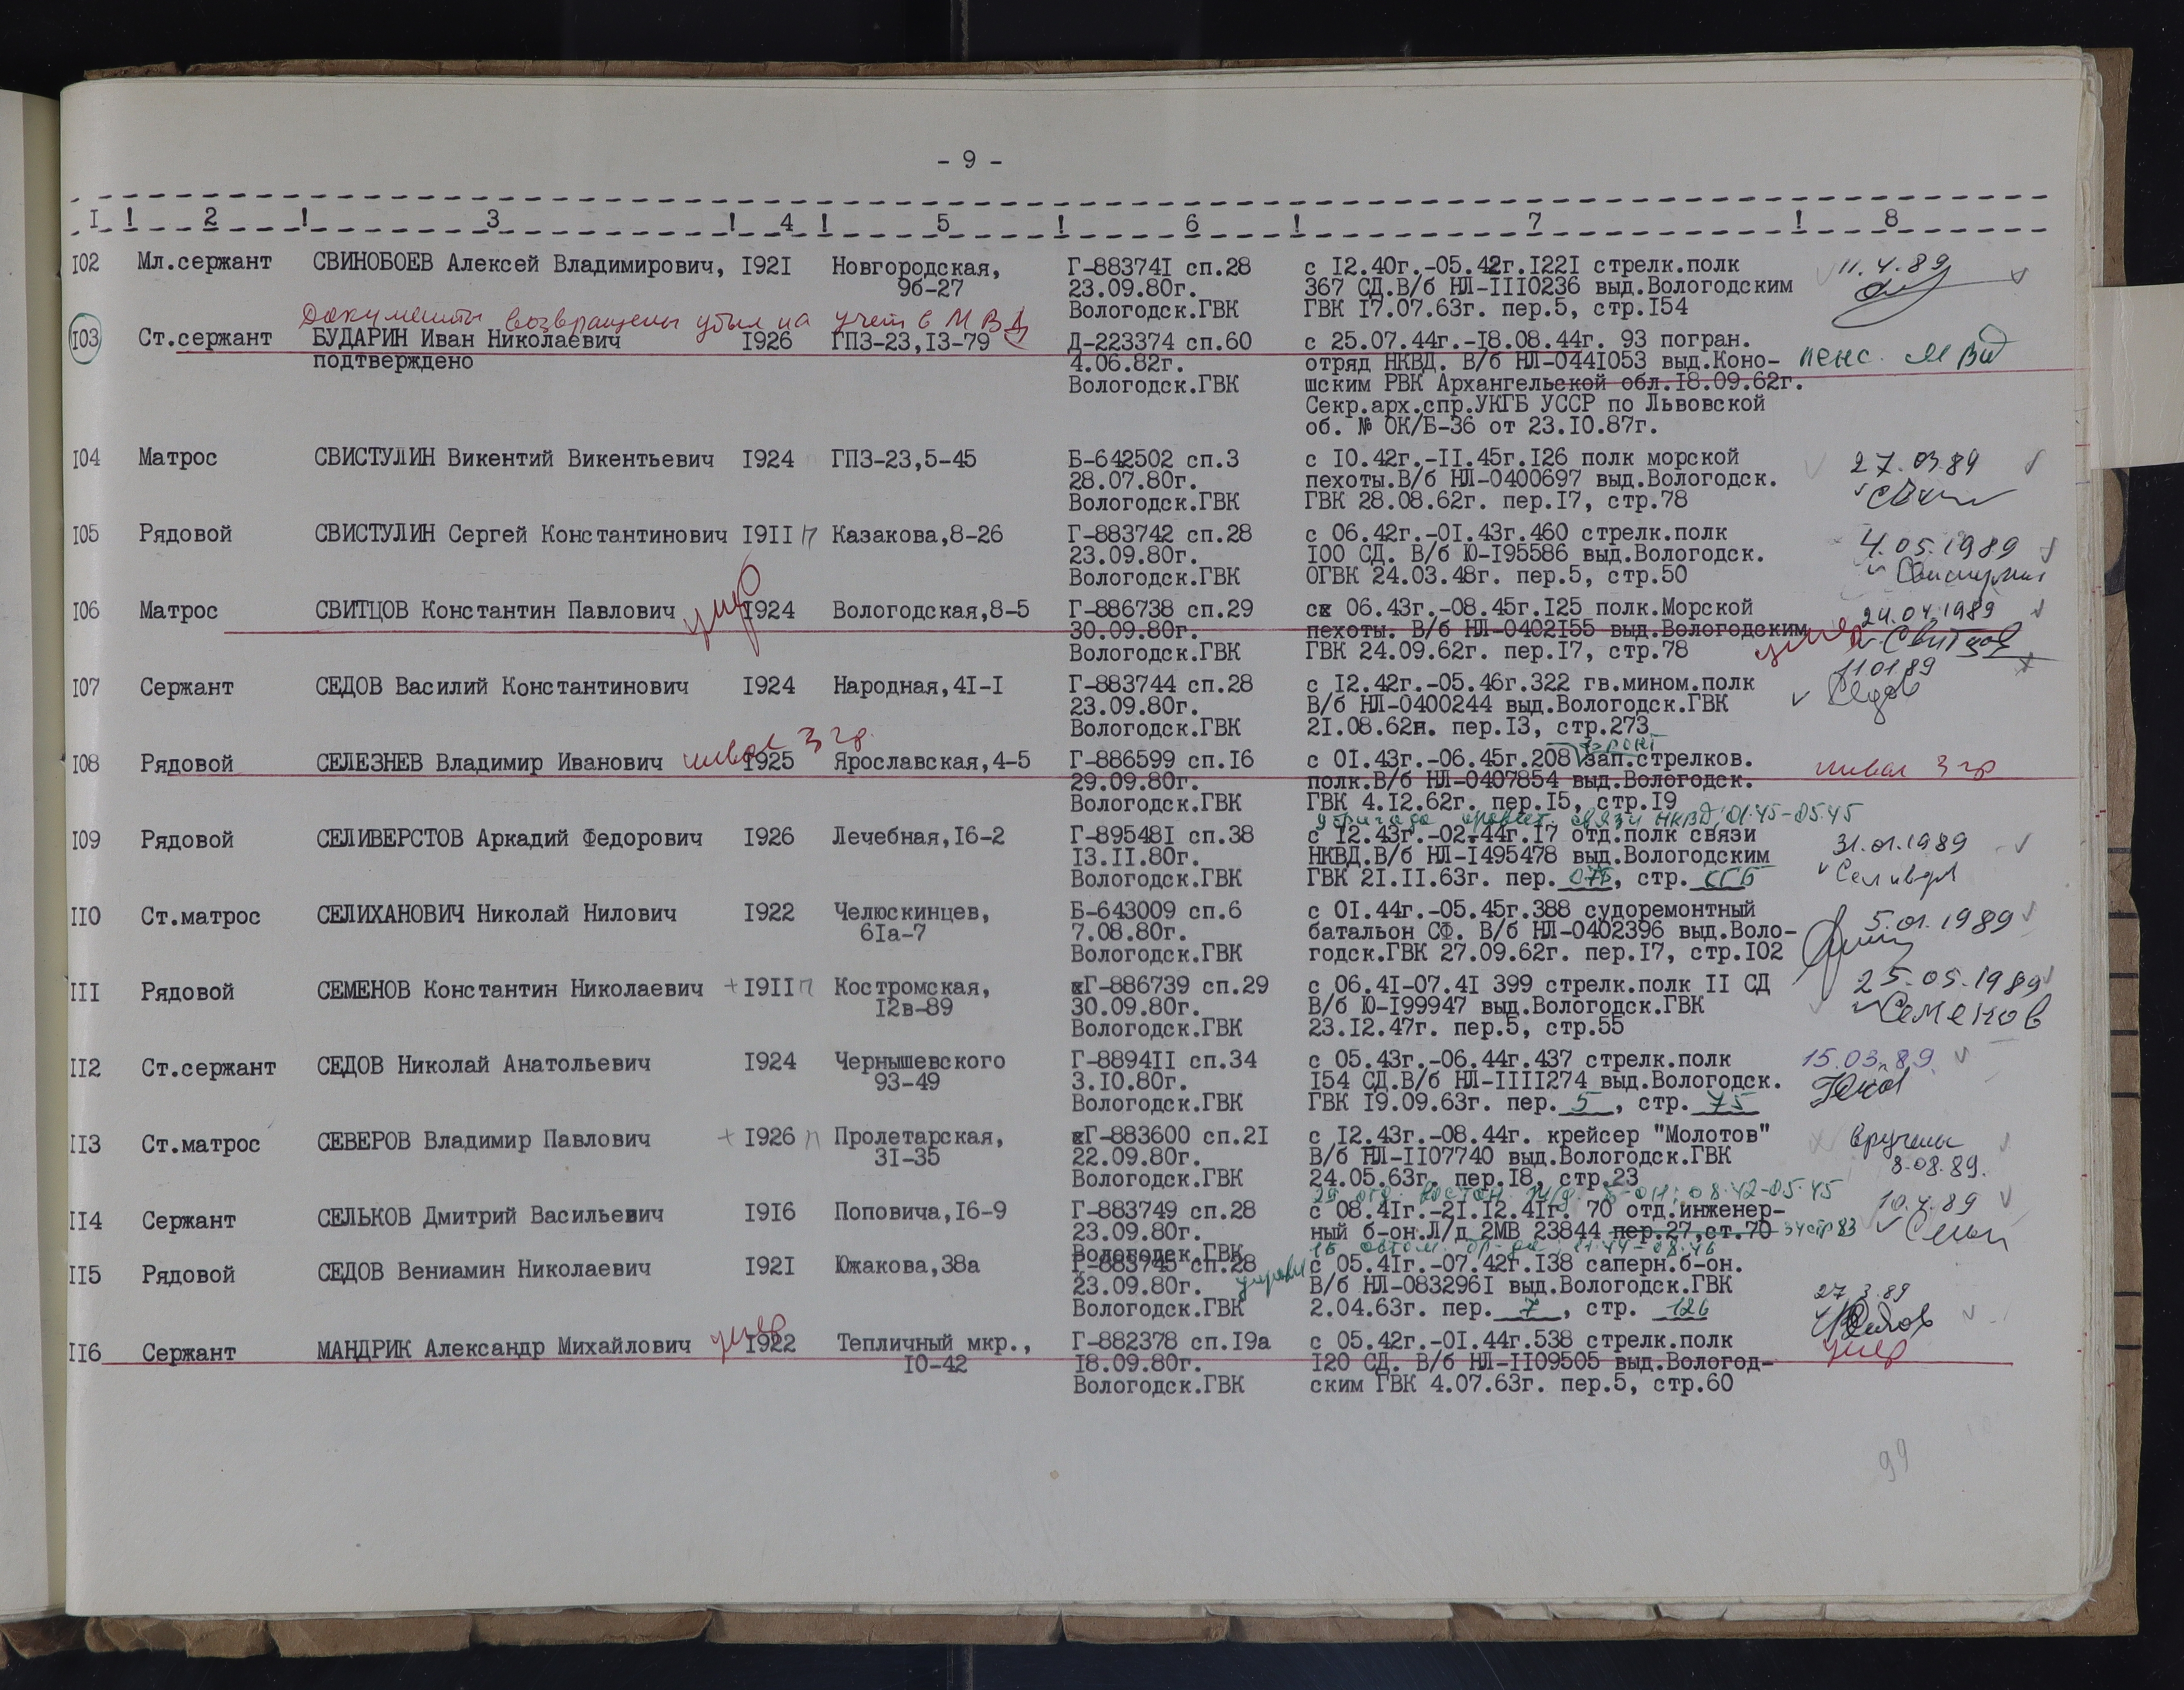 - 9 -
I ! 2 ! 3 ! 4 ! 5 ! 6 ! 7 ! 8
I02 Мл.сержант СВИНОБОЕВ Алексей Владимирович, I92I Новгородская, Г-88374I сп.28 с I2.40г.-05.42г.I22I стрелк.полк 11.4.89
9б-27 23.09.80г. 367 СД.В/б НЛ-III0236 выд.Вологодским
Вологодск.ГВК ГВК I7.07.63г. пер.5, стр.I54
Документы возвращены убыл на учет в МВД
I03 Ст.сержант БУДАРИН Иван Николаевич I926 ГПЗ-23,I3-79 Д-223374 сп.60 с 25.07.44г.-I8.08.44г. 93 погран.
подтверждено 4.06.82г. отряд НКВД. В/б НЛ-044I053 выд.Коно- пенс. МВД
Вологодск.ГВК шским РВК Архангельской обл.I8.09.62г.
Секр.арх.спр.УКГБ УССР по Львовской
об. № ОК/Б-36 от 23.I0.87г.
I04 Матрос СВИСТУЛИН Викентий Викентьевич I924 ГПЗ-23,5-45 Б-642502 сп.3 с I0.42г.-II.45г.I26 полк морской 27.03.89
28.07.80г. пехоты.В/б НЛ-0400697 выд.Вологодск.
Вологодск.ГВК ГВК 28.08.62г. пер.I7, стр.78
I05 Рядовой СВИСТУЛИН Сергей Константинович I9II п Казакова,8-26 Г-883742 сп.28 с 06.42г.-0I.43г.460 стрелк.полк 4.05.1989
23.09.80г. I00 СД. В/б Ю-I95586 выд.Вологодск. Свистулин
Вологодск.ГВК ОГВК 24.03.48г. пер.5, стр.50
I06 Матрос СВИТЦОВ Константин Павлович умер I924 Вологодская,8-5 Г-886738 сп.29 сж 06.43г.-08.45г.I25 полк.Морской 24.04.1989
30.09.80г. пехоты. В/б НЛ-0402I55 выд.Вологодским умер Свитцов
Вологодск.ГВК ГВК 24.09.62г. пер.I7, стр.78
I07 Сержант СЕДОВ Василий Константинович I924 Народная,4I-I Г-883744 сп.28 с I2.42г.-05.46г.322 гв.мином.полк 11 01 89
23.09.80г. В/б НЛ-0400244 выд.Вологодск.ГВК Седов
Вологодск.ГВК 2I.08.62н. пер.I3, стр.273
инвал 3 гр. фронт
I08 Рядовой СЕЛЕЗНЕВ Владимир Иванович I925 Ярославская,4-5 Г-886599 сп.I6 с 0I.43г.-06.45г.208 зап.стрелков. инвал 3 гр
29.09.80г. полк.В/б НЛ-0407854 выд.Вологодск.
Вологодск.ГВК ГВК 4.I2.62г. пер.I5, стр.I9
бригада правит. связи НКВД 01.45-05.45
I09 Рядовой СЕЛИВЕРСТОВ Аркадий Федорович I926 Лечебная,I6-2 Г-89548I сп.38 с I2.43г.-02.44г.I7 отд.полк связи 31.01.1989
I3.II.80г. НКВД.В/б НЛ-I495478 выд.Вологодским
Вологодск.ГВК ГВК 2I.II.63г. пер. , стр.
II0 Ст.матрос СЕЛИХАНОВИЧ Николай Нилович I922 Челюскинцев, Б-643009 сп.6 с 0I.44г.-05.45г.388 судоремонтный 5.01.1989
6Iа-7 7.08.80г. батальон СФ. В/б НЛ-0402396 выд.Воло-
Вологодск.ГВК годск.ГВК 27.09.62г. пер.I7, стр.I02
III Рядовой СЕМЕНОВ Константин Николаевич + I9II п Костромская, жГ-886739 сп.29 с 06.4I-07.4I 399 стрелк.полк II СД 25.05.1989
I2в-89 30.09.80г. В/б Ю-I99947 выд.Вологодск.ГВК Семенов
Вологодск.ГВК 23.I2.47г. пер.5, стр.55
II2 Ст.сержант СЕДОВ Николай Анатольевич I924 Чернышевского Г-8894II сп.34 с 05.43г.-06.44г.437 стрелк.полк 15.03.89.
93-49 3.I0.80г. I54 СД.В/б НЛ-IIII274 выд.Вологодск.
Вологодск.ГВК ГВК I9.09.63г. пер. 5 , стр. 75
II3 Ст.матрос СЕВЕРОВ Владимир Павлович + I926 п Пролетарская, жГ-883600 сп.2I с I2.43г.-08.44г. крейсер "Молотов" вручены
3I-35 22.09.80г. В/б НЛ-II07740 выд.Вологодск.ГВК 8.08.89.
Вологодск.ГВК 24.05.63г. пер.I8, стр.23
29 отд. ж/д. б-он: 08.42-05.45
II4 Сержант СЕЛЬКОВ Дмитрий Васильевич I9I6 Поповича,I6-9 Г-883749 сп.28 с 08.4Iг.-2I.I2.4Iг. 70 отд.инженер- 10.4.89
23.09.80г. ный б-он.Л/д 2МВ 23844 пер.27,ст.70 34 стр 83
Вологодск.ГВК 11.44-08.46
II5 Рядовой СЕДОВ Вениамин Николаевич I92I Южакова,38а Г-883745 сп.28 с 05.4Iг.-07.42г.I38 саперн.б-он.
23.09.80г. В/б НЛ-083296I выд.Вологодск.ГВК 27.3.89
Вологодск.ГВК 2.04.63г. пер. 7 , стр. 126 Седов
II6 Сержант МАНДРИК Александр Михайлович умер I922 Тепличный мкр., Г-882378 сп.I9а с 05.42г.-0I.44г.538 стрелк.полк умер
I0-42 I8.09.80г. I20 СД. В/б НЛ-II09505 выд.Вологод-
Вологодск.ГВК ским ГВК 4.07.63г. пер.5, стр.60
99